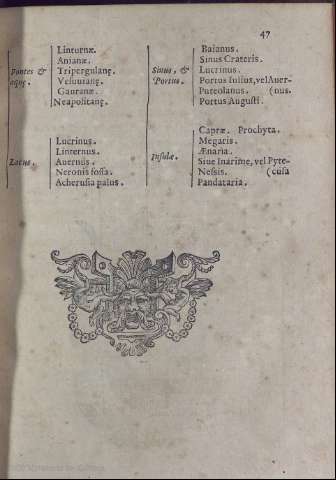 47
Fontes &
aquę.
Linturnæ.
Anianæ.
Tripergulanę.
Vesuuianę.
Gauranæ.
Neapolitanę.
Sinus, &
Portus.
Baianus.
Sinus Crateris.
Lucrinus.
Portus Iulius, vel Auer-
Puteolanus. (nus.
Portus Augusti.
Lacus.
Lucrinus.
Linternus.
Auernus.
Neronis fossa.
Acherusia palus.
Insulæ.
Capræ. Prochyta.
Megaris.
Ænaria.
Siue Inarime, vel Pyte-
Nessis. (cusa
Pandataria.